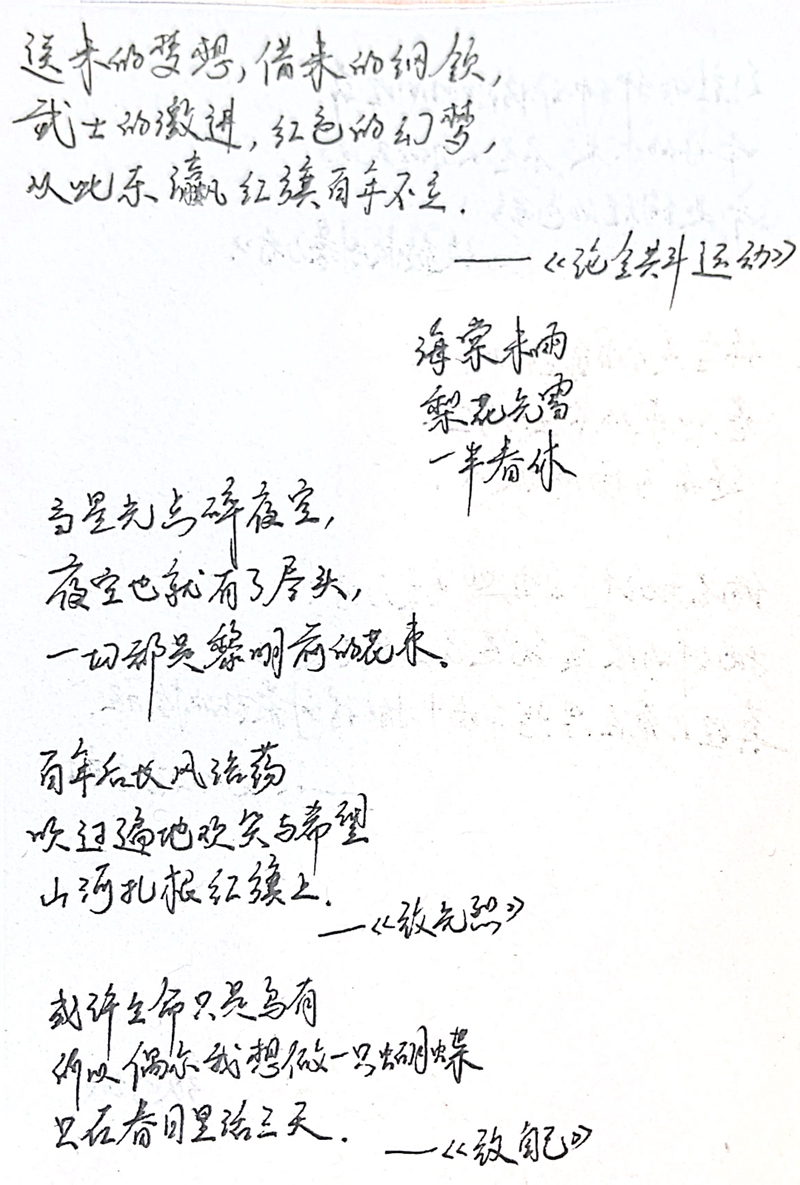 送来的梦想，借来的纲领，
武士的激进，红色的幻梦，
从此东瀛红旗百年不立.
——《论全共斗运动》
海棠未雨
梨花先雪
一半春休
当星光点碎夜空，
夜空也就有了尽头，
一切都是黎明前的花束。
百年后故风浩荡
吹过遍地欢笑与希望
山河扎根红旗上.
—《致先烈》
或许生命只是乌有
所以偶尔我想做一只蝴蝶
只在春日里活三天.
—《致自己》